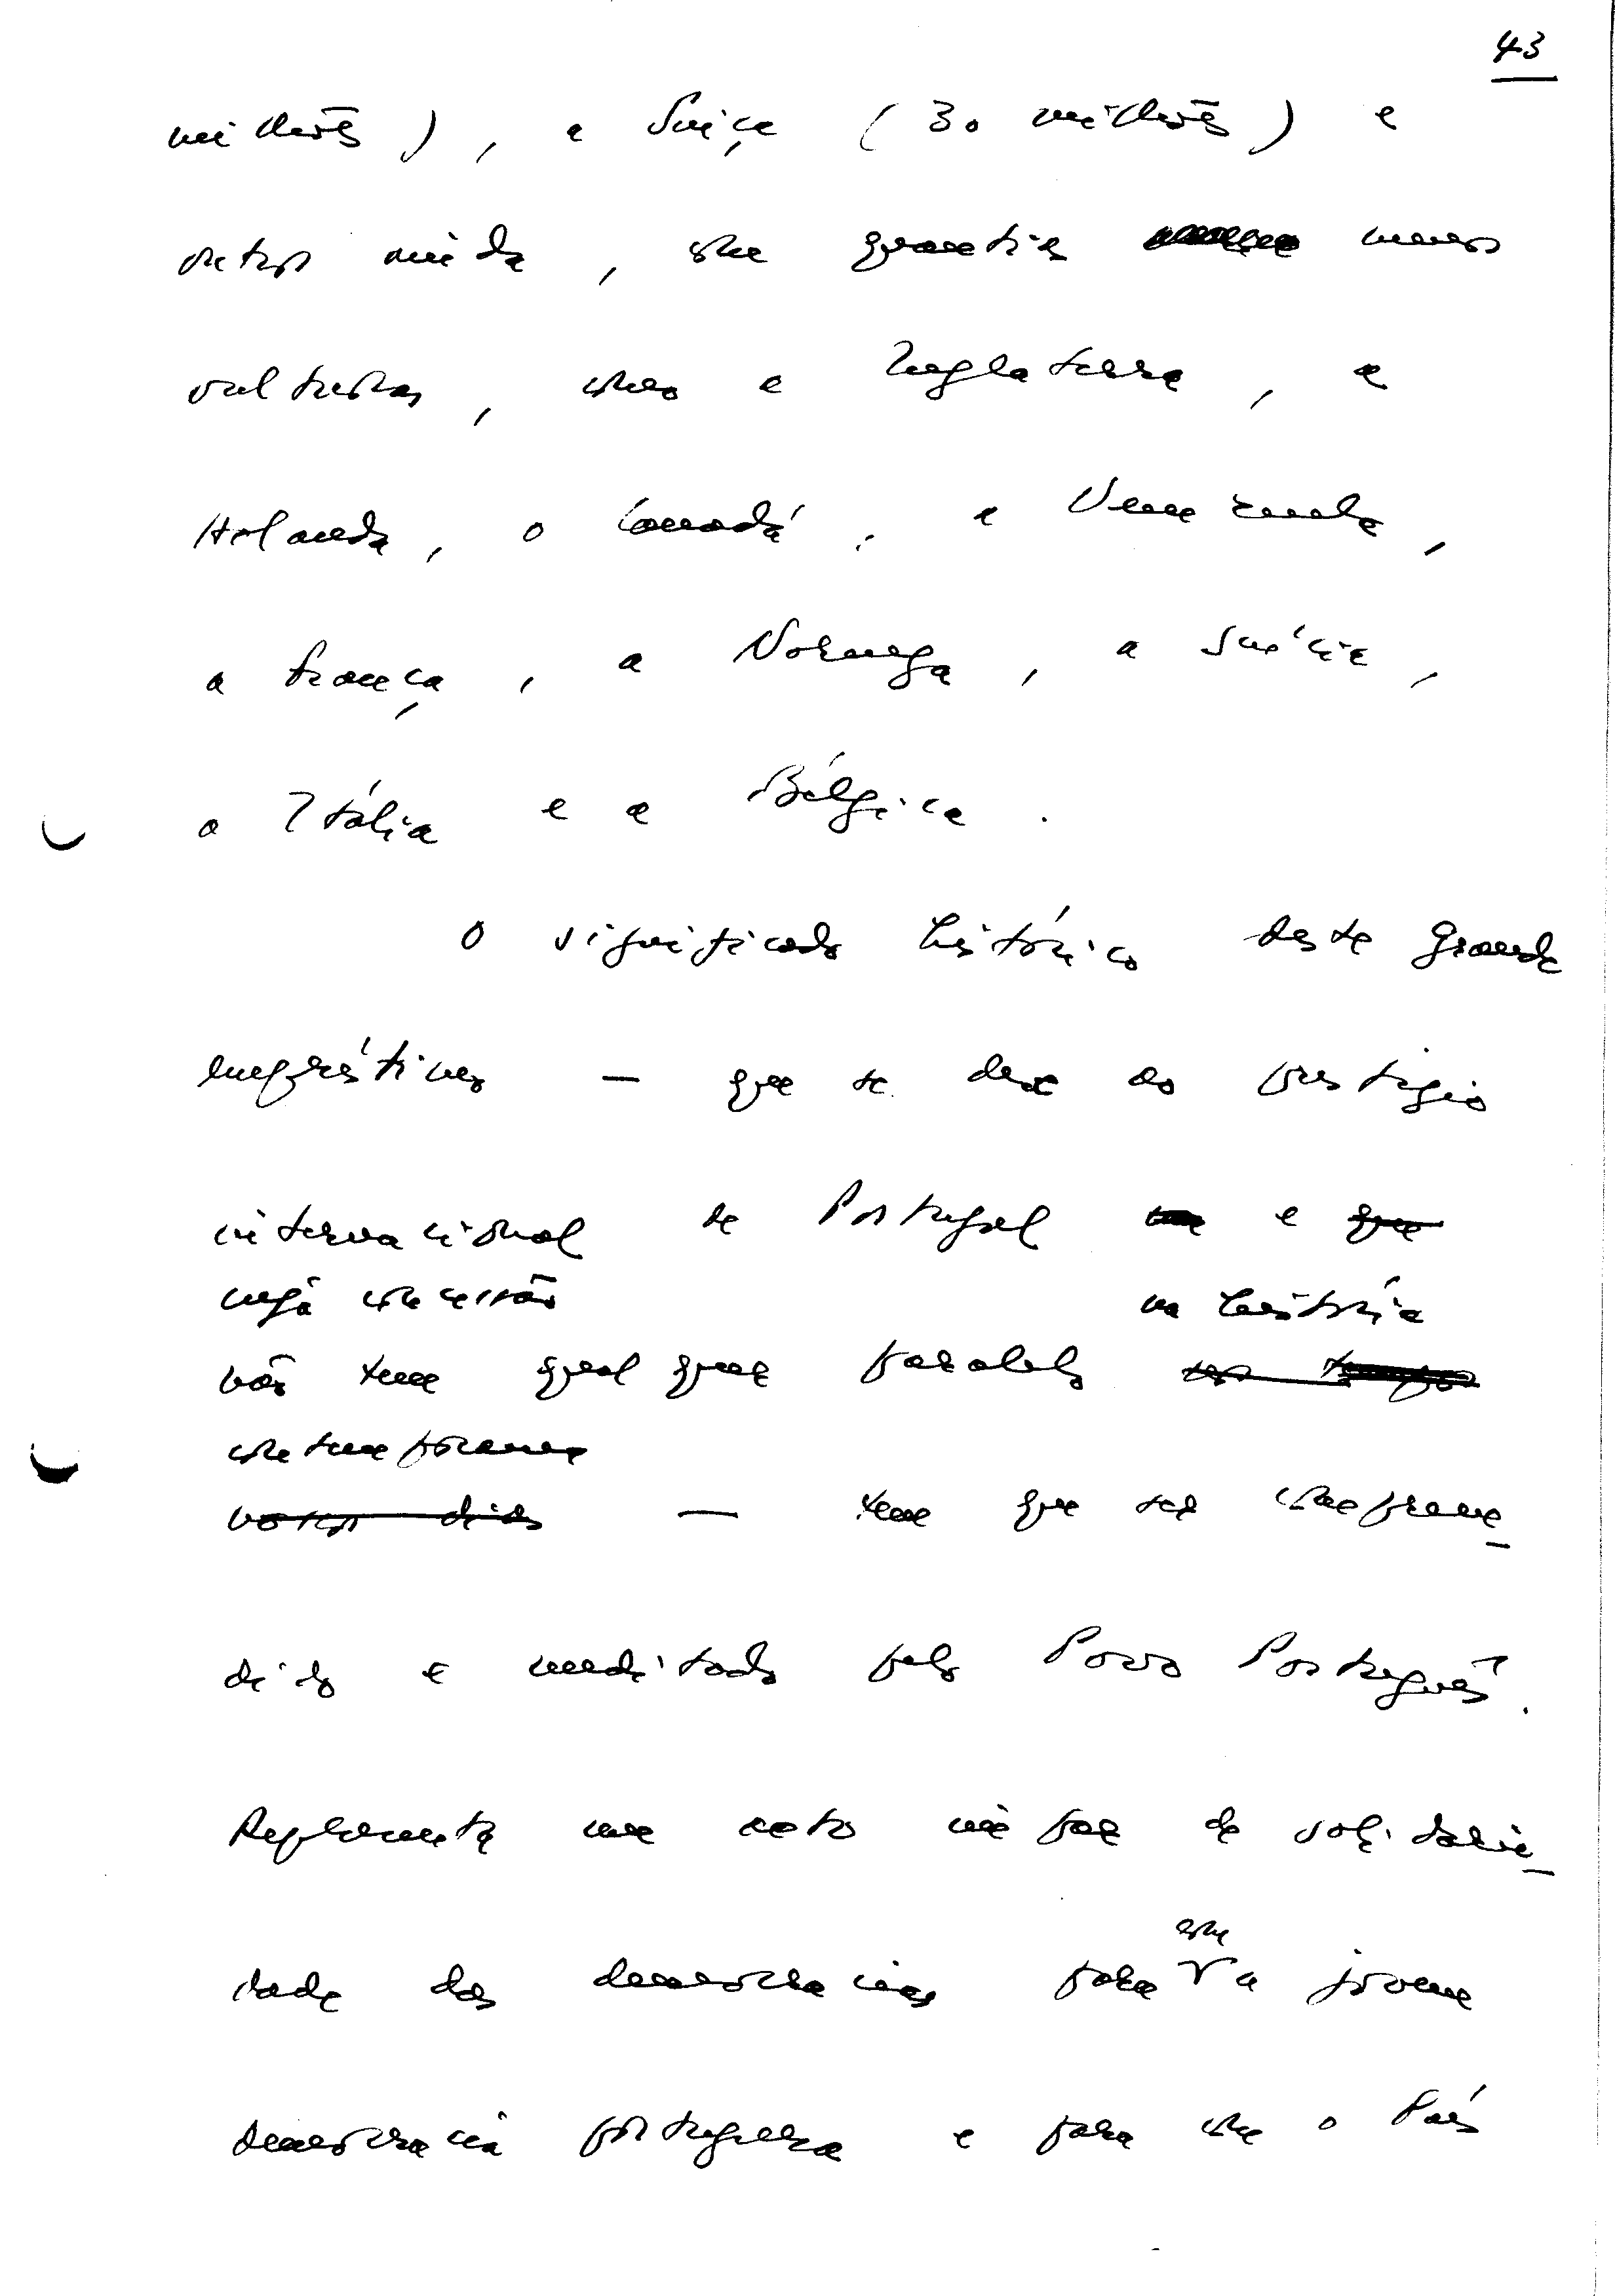 43
milhões), a Suiça (30 milhões) e
outros ainda, com quantias menos
vultuosas, como a Inglaterra, a
Holanda, o Canadá, a Venezuela,
a França, a Noruega, a Suécia,
a Itália e a Bélgica.
O significado histórico deste grande
empréstimo — que se deve ao prestígio
internacional de Portugal e que
cuja concessão na história
não tem qualquer paralelo
contemporânea
nossos dias — tem que ser compreen-
dido e meditado pelo Povo Português.
Representa um acto ímpar de solidarie-
dade das democracias para com
a jovem
democracia portuguesa e para com o País